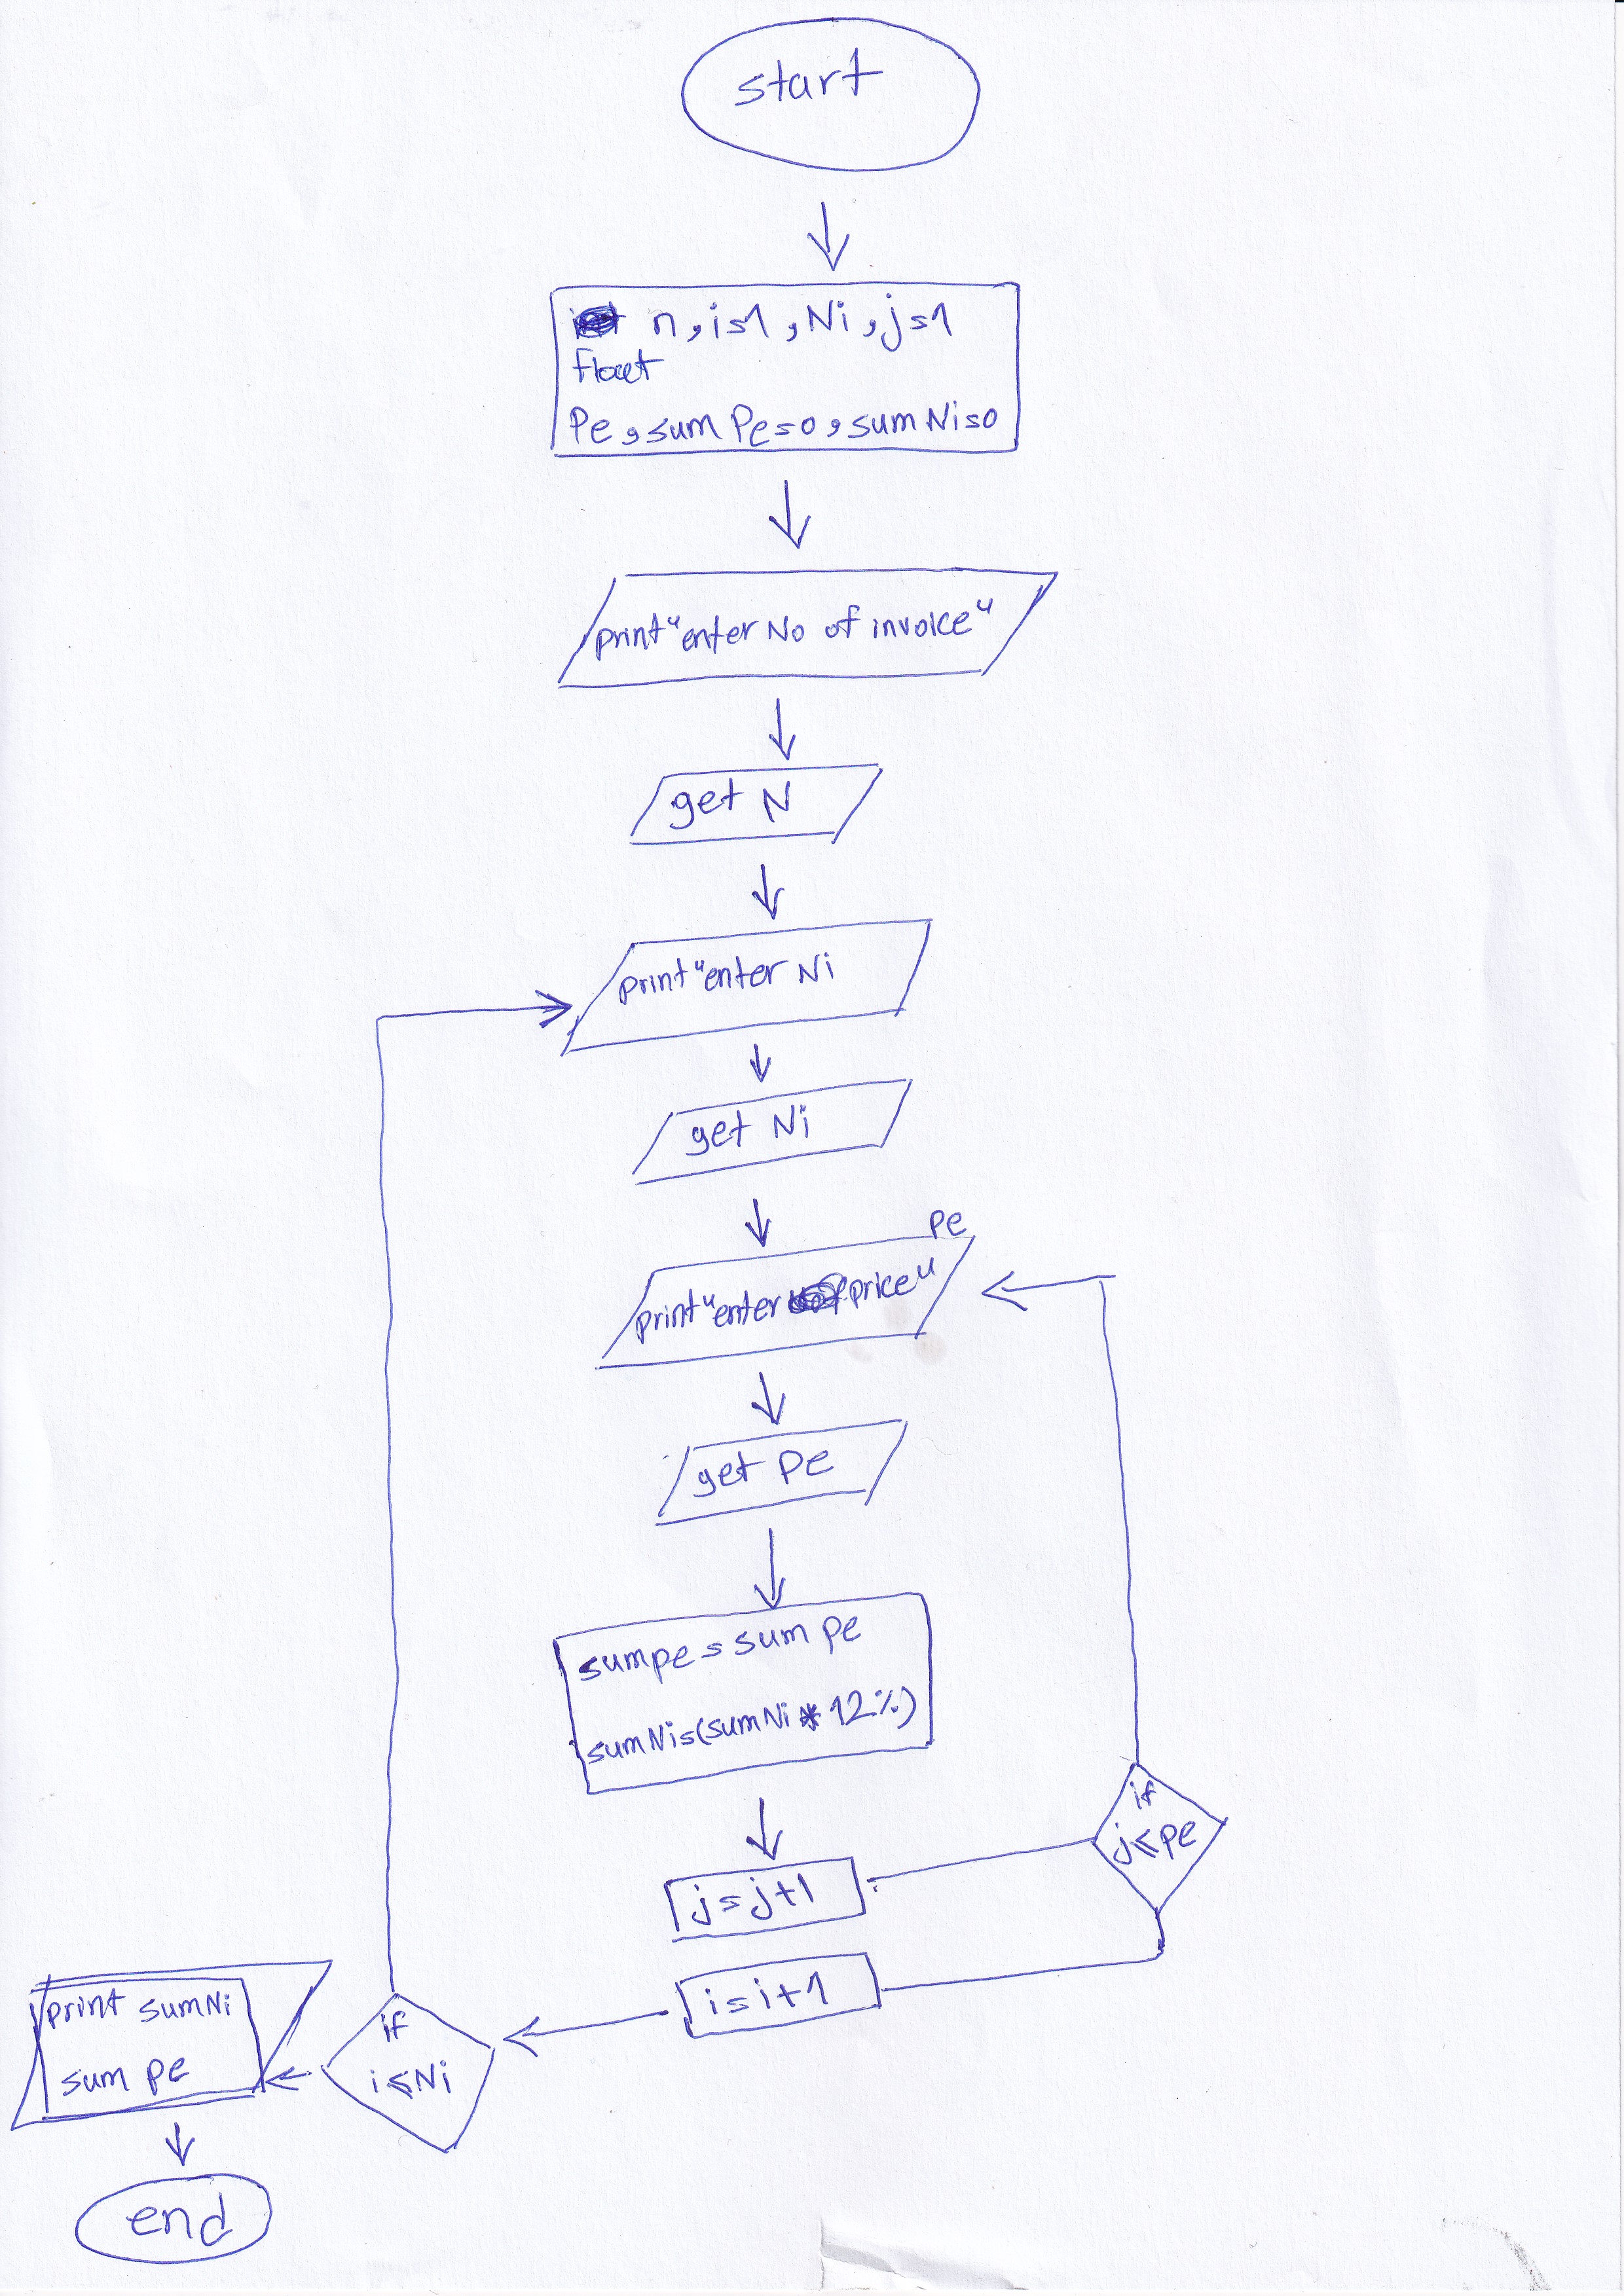 start
n, i=1, Ni, j=1
float
Pe, sum Pe=0, sum Ni=0
print "enter No of invoice"
get N
print "enter Ni
get Ni
pe
print "enter price"
get pe
sumpe = sum pe
sumNi=(sumNi * 12%)
if
j≤pe
j=j+1
i=i+1
if
i≤Ni
print sumNi
sum pe
end